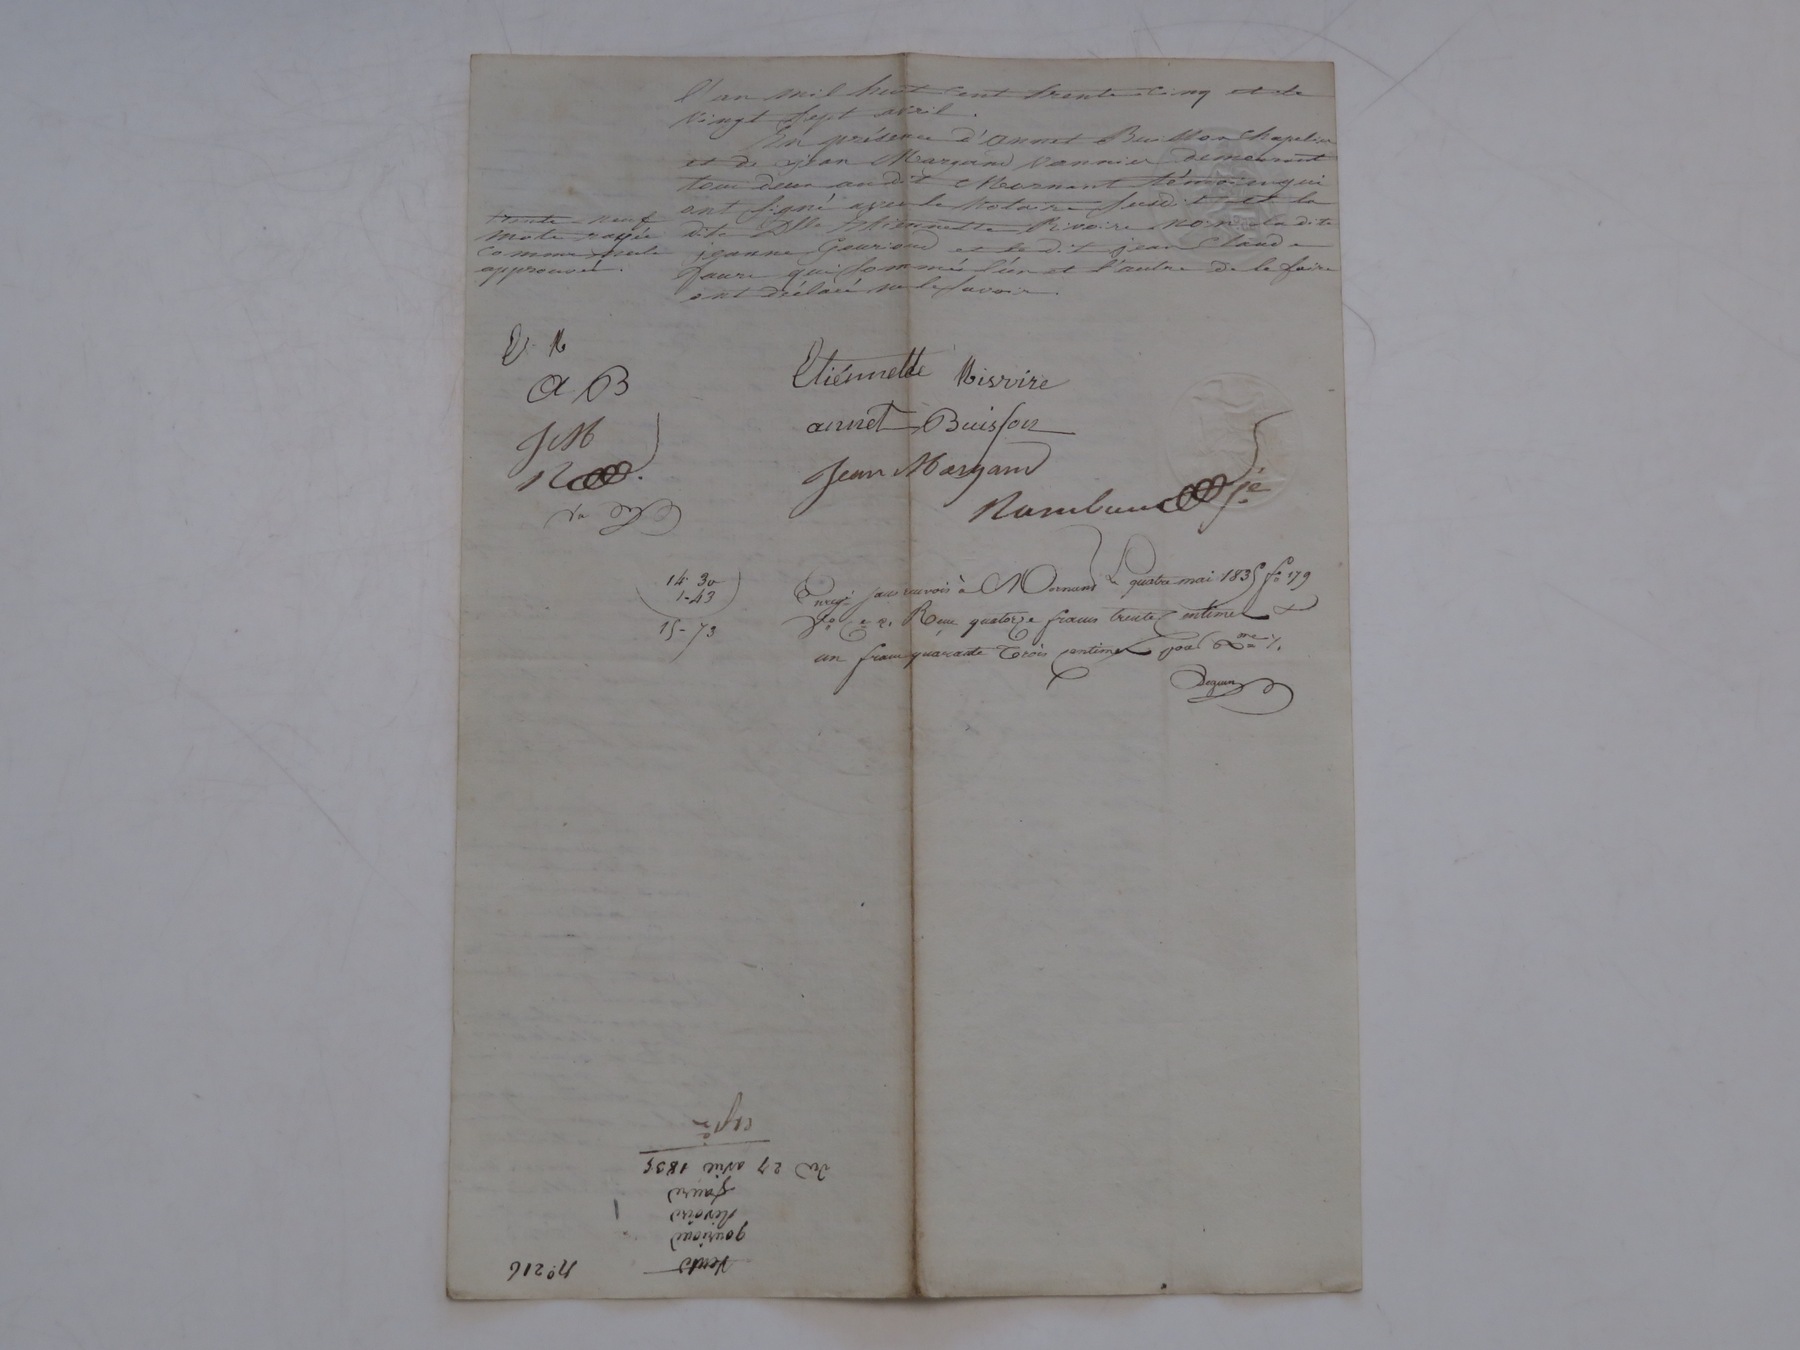 l'an mil huit cent trente cinq et le
vingt sept avril.
En présence d'annet Buisson Chapelier
et de jean Margand vannier demeurant
tous deux audit Mornant témoins qui
ont signé avec le Notaire susdit et la
dite Dlle Etiennette Rivoire non la dite
jeanne Gourioud et le dit jean Claude
faure qui sommés l'un et l'autre de le faire
ont déclaré ne le savoir.
trente neuf
mots rayés
comme nuls
approuvés.
E. R
a. B
JM
R
Etiennette Risvire
annet Buisson
Jean Margand
14. 30
1. 43
15 - 73
Enregé sans renvois à Mornant Le quatre mai 1835 fo 179
vo Ce 2. Reçu quatorze francs trente centimes &
un franc quarante trois centimes pour Dme %.
Nº 216
Vente
gourioud
Rivoire
faure
du 27 avril 1835